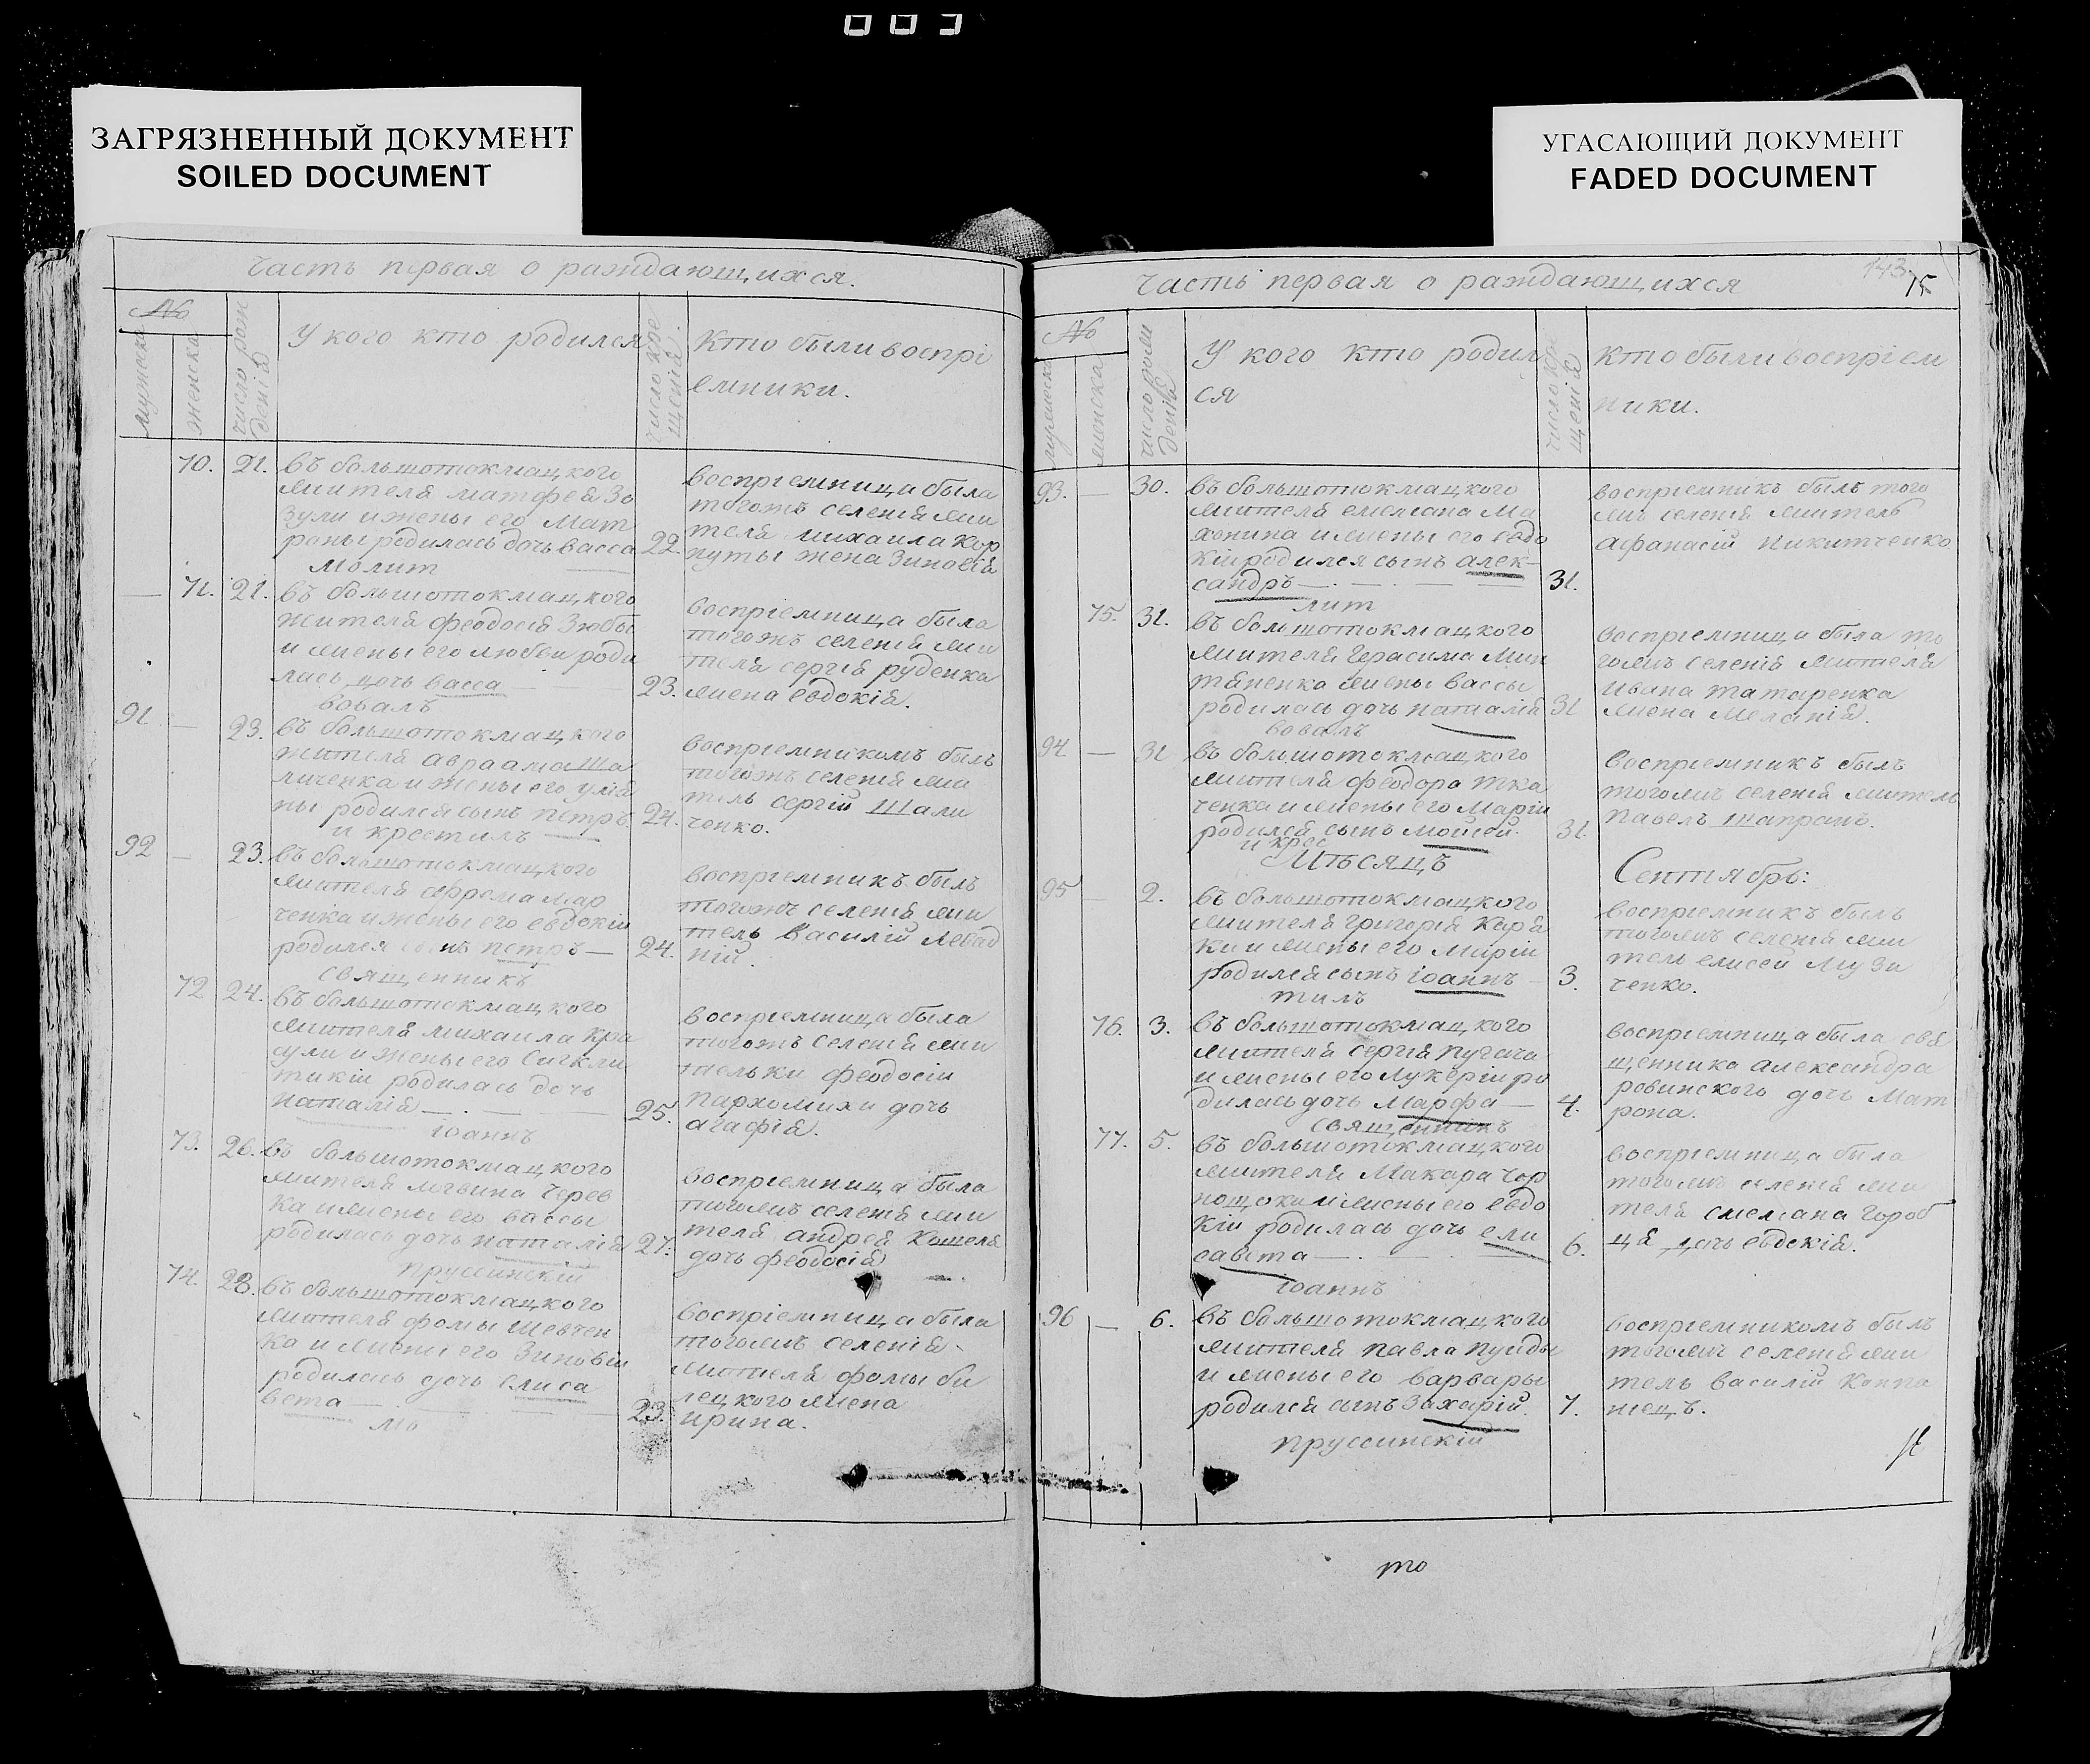 ЗАГРЯЗНЕННЫЙ ДОКУМЕНТ
SOILED DOCUMENT
УГАСАЮЩИЙ ДОКУМЕНТ
FADED DOCUMENT
Часть первая о раждающихся.
№
мужеска
женска
число рож
денія
У кого кто родился
число кре
щенія.
Кто были воспрі
емники.
70.
21.
въ большотокмацкого
жителя матфея Зо
зули и жены его Мат
роны родилась дочь васса
22.
воспріемница была
тогожъ селенія жи
теля михаила Кор
путы жена Зиновія
молит
71.
21.
въ большотокмацкого
жителя феодосія Зюбы
и жены его любви роди
лась дочь васса
23.
воспріемница была
тогожъ селенія жи
теля сергія руденка
жена евдокія.
вовалъ
91
23.
въ большотокмацкого
жителя авраама Ша
личенка и жены его уліа
ны родился сынъ петръ
24.
воспріемникомъ былъ
тогожъ селенія жи
тель сергій Шали
ченко.
и крестилъ
92
23.
въ большотокмацкого
жителя ефрема мар
ченка и жены его евдокіи
родился сынъ петръ
24.
воспріемникъ былъ
тогожъ селенія жи
тель василій левад
ній.
священникъ
72
24.
въ большотокмацкого
жителя михаила Кра
сули и жены его Сигкли
тикіи родилась дочь
наталія
25.
воспріемница была
тогожъ селенія жи
тельки феодосіи
пархомихи дочь
агафія.
іоаннъ
73.
26.
въ большотокмацкого
жителя логвина Черев
ка и жены его вассы
родилась дочь наталія
27.
воспріемница была
тогожъ селенія жи
теля андрея Кошеля
дочь феодосія
пруссинскій
74.
28.
въ большотокмацкого
жителя фомы шевчен
ка и жены его Зиновіи
родилась дочь елиса
вета
воспріемница была
тогожъ селенія
жителя фомы би
лецкого жена
ирина.
мо
Часть первая о раждающихся
143.
75
№
мужеска
женска
число рож
денія
У кого кто родил
ся
число кре
щенія
Кто были воспріем
ники.
93.
30.
въ большотокмацкого
жителя емеліана Ма
хонина и жены его евдо
кіи родился сынъ алек-
сандръ
31.
воспріемникъ былъ того
жъ селенія житель
афанасій никитченко
лит
75.
31.
въ большотокмацкого
жителя Герасима Мик
тененка жены вассы
родилась дочь наталія
31
воспріемница была то
гожъ селенія жителя
ивана татаренка
жена меланія.
вовалъ
94
31
въ большотокмацкого
жителя феодора тка
ченка и жены его маріи
родился сынъ моисей.
31.
воспріемникъ былъ
тогожъ селенія житель
павелъ шапранъ.
и крес
Мѣсяцъ
Сентябрь:
95
2.
въ большотокмацкого
жителя григорія Каря
ки и жены его маріи
родился сынъ іоаннъ
3.
воспріемникъ былъ
тогожъ селенія жи
тель елисей музи
ченко.
тилъ
76.
3.
въ большотокмацкого
жителя сергія пугача
и жены его лукеріи ро
дилась дочь марфа
4.
воспріемница была свя
щенника александра
ровинского дочь мат
рона.
священникъ
77.
5.
въ большотокмацкого
жителя макара чор
нощока и жены его евдо
кіи родилась дочь ели
савета
6.
воспріемница была
тогожъ селенія жи
теля емеліана Гороб
ця дочь евдокія.
іоаннъ
96
6.
въ большотокмацкого
жителя павла пуйды
и жены его варвары
родился сынъ захарій.
7.
воспріемникомъ былъ
тогожъ селенія жи
тель василій
пруссинскій
то